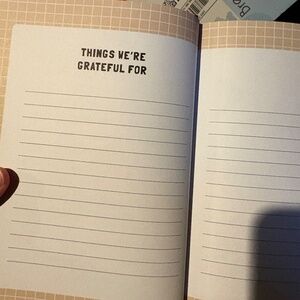 THINGS WE'RE
GRATEFUL FOR
Bre